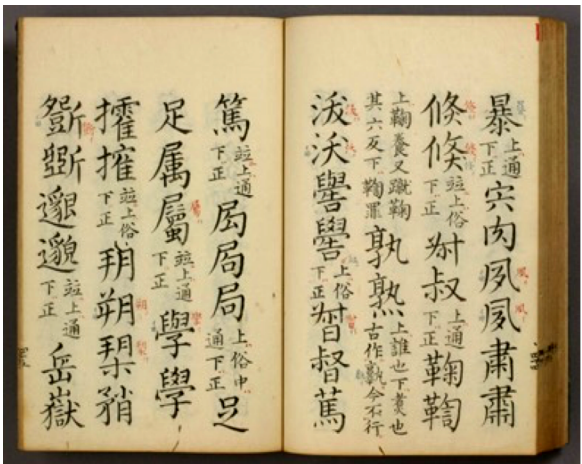 暴上通下正宍肉夙肅肅
倐倏竝上俗下正叔上通下正鞠鞫
上鞠養又蹴鞠其六反下鞫罪孰熟上誰也下煑也古作今不行
沃嚳上俗下正督篤
篤竝上通下正局局上俗中通下正足
足属屬竝上通下正學學
搉竝上俗下正朔矟
斵邈竝上通下正岳嶽